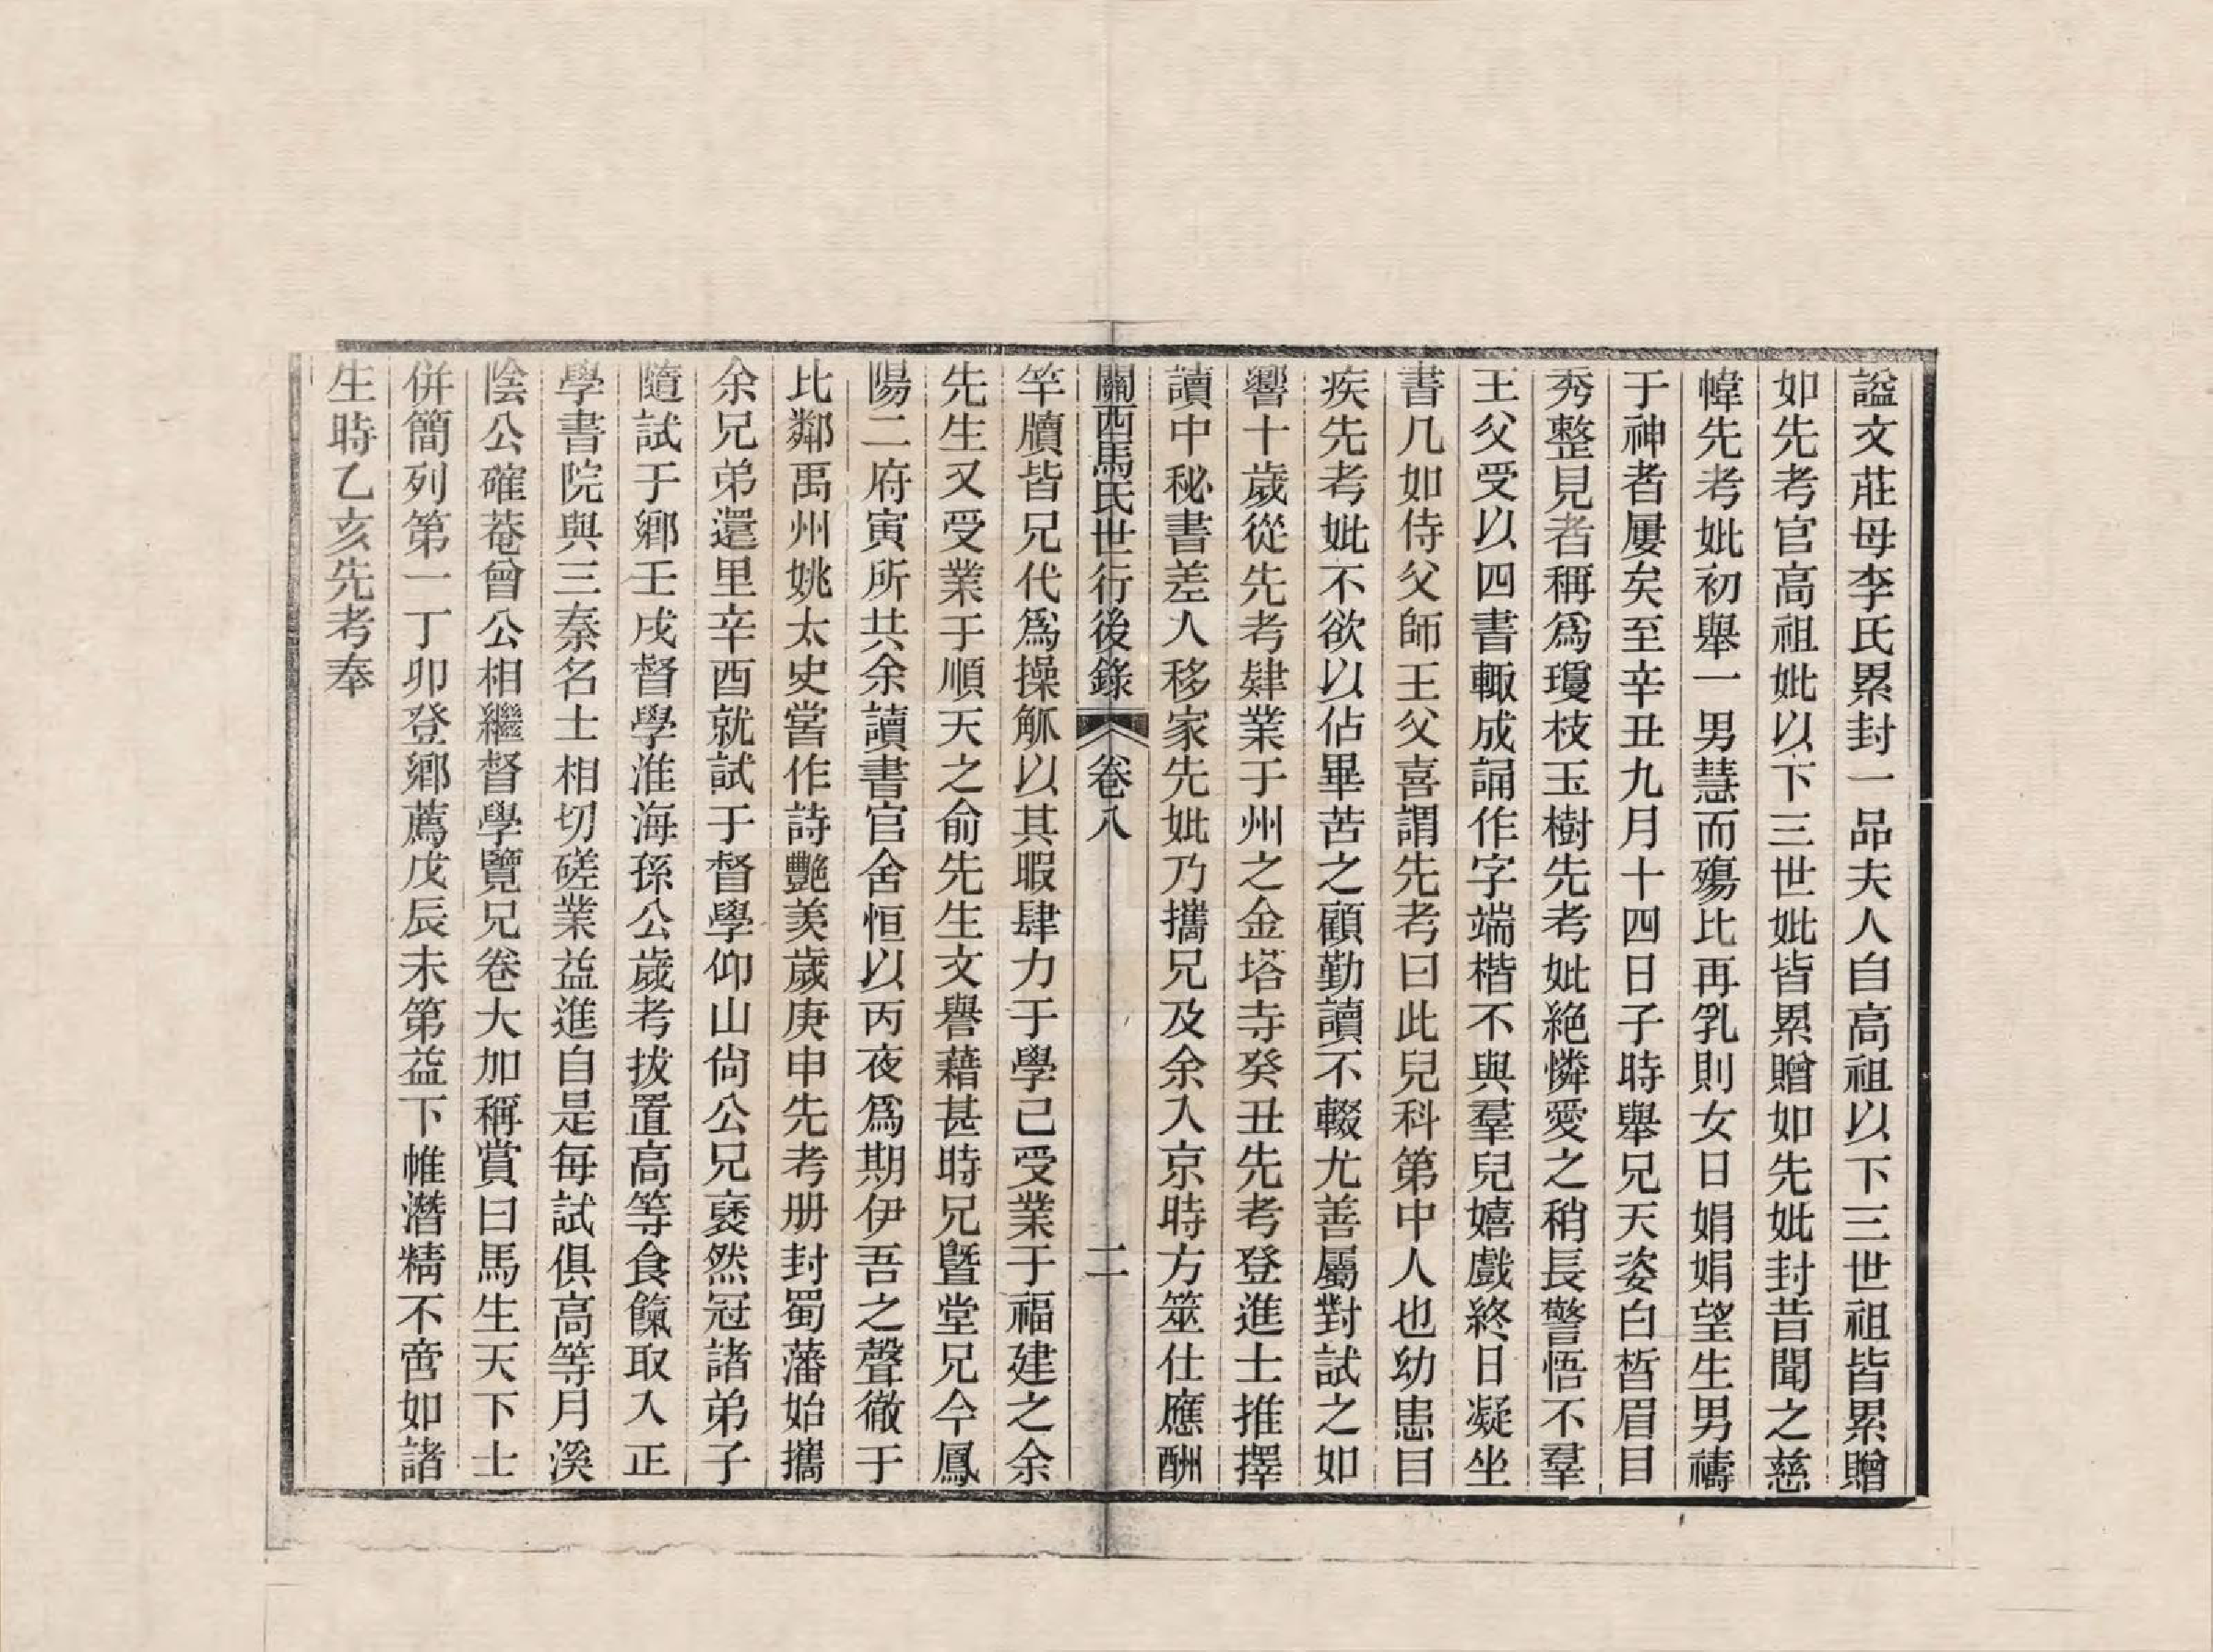 諡文莊母李氏累封一品夫人自高祖以下三世祖皆累贈
如先考官高祖妣以下三世妣皆累贈如先妣封昔聞之慈
幃先考妣初舉一男慧而殤比再乳則女日娟娟望生男禱
于神者屢矣至辛丑九月十四日子時舉兄天姿白皙眉目
秀整見者稱爲瓊枝玉樹先考妣絕憐愛之稍長警悟不羣
王父受以四書輙成誦作字端楷不與羣兒嬉戲終日凝坐
書几如侍父師王父喜謂先考曰此兒科第中人也幼患目
疾先考妣不欲以佔畢苦之顧勤讀不輟尤善屬對試之如
響十歲從先考肄業于州之金塔寺癸丑先考登進士推擇
讀中秘書差人移家先妣乃攜兄及余入京時方筮仕應酬
關西馬氏世行後錄 卷八 二
竿牘皆兄代爲操觚以其暇肆力于學已受業于福建之余
先生又受業于順天之俞先生文譽藉甚時兄曁堂兄今鳳
陽二府寅所共余讀書官舍恒以丙夜爲期伊吾之聲徹于
比鄰禹州姚太史嘗作詩艷羨歲庚申先考册封蜀藩始攜
余兄弟還里辛酉就試于督學仰山尙公兄裒然冠諸弟子
隨試于鄉壬戌督學淮海孫公歲考拔置高等食餼取入正
學書院與三秦名士相切磋業益進自是每試俱高等月溪
陰公確菴曾公相繼督學覽兄卷大加稱賞曰馬生天下士
併簡列第一丁卯登鄉薦戊辰未第益下帷潛精不啻如諸
生時乙亥先考奉